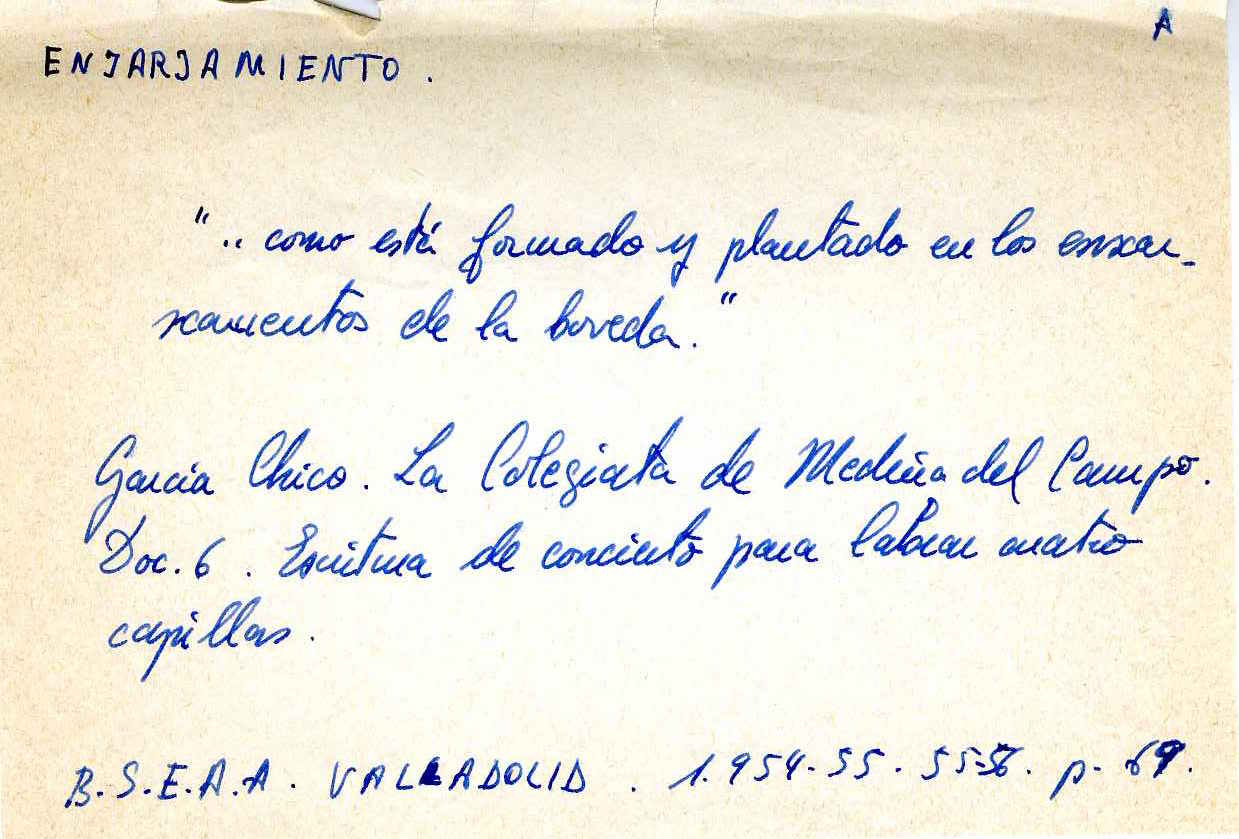 A
ENJARJAMIENTO.
".. como está formado y plantado en los enxar-
xamentos de la boveda."
García Chico. La Colegiata de Medina del Campo.
Doc. 6. Escritura de concierto para labrar cuatro
capillas.
B.S.E.A.A. VALLADOLID. 1.954-55. 55-56. p. 69.